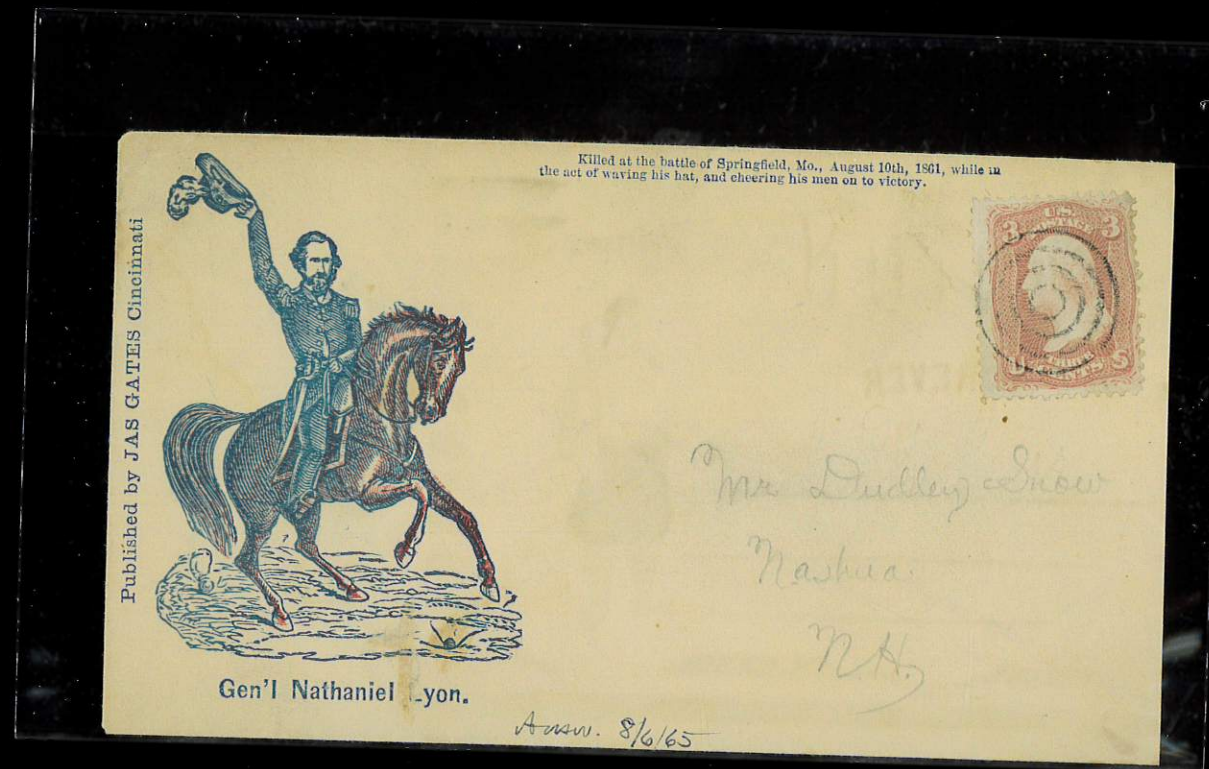 Killed at the battle of Springfield, Mo., August 10th, 1861, while in
the act of waving his hat, and cheering his men on to victory.
Published by JAS GATES Cincinnati
3 U.S. POSTAGE 3
U THREE CENTS S
Mr Dudley Snow
Nashua.
N.H.
Gen'l Nathaniel Lyon.
Answ. 8/6/65